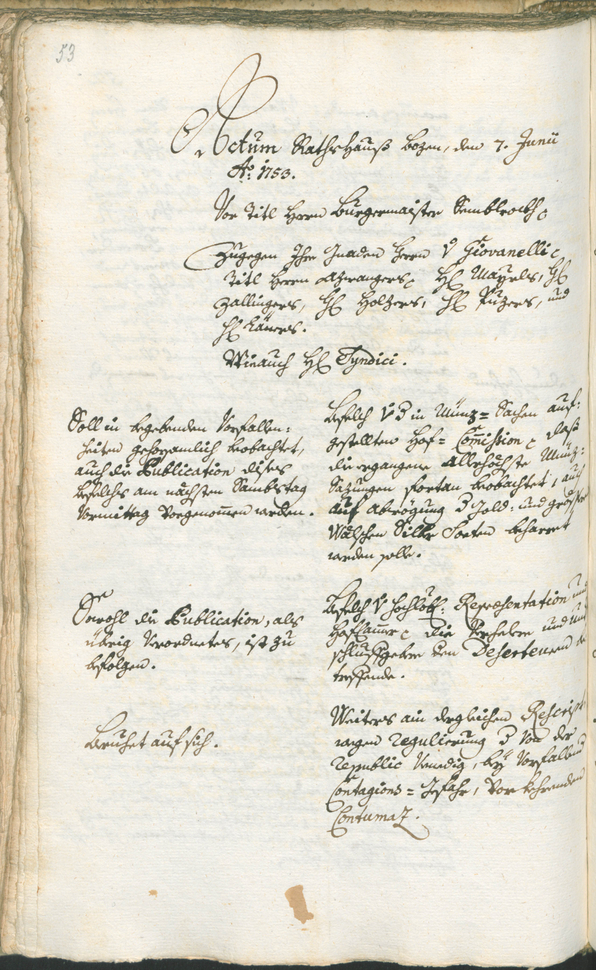 53
Actum Rathshauß Bozen, den 7. Junii
Ao: 1753.
Vor Titl Herrn Burgermaister
Zugegen Ihro Gnaden Herrn v Giovanelli
Titl Herrn Azwangers, H: Mayrls, H:
Zallingers, H: Holzers, H: und
H:
Wie auch H: Syndici.
Soll in begebenden Vorfallen-
heiten gehorsamlich beobachtet,
auch die Publication dises
befelchs am nächsten Sambstag
Vormittag vorgenommen werden.
Befelch v d in Münz-Sachen auf-
gestellten Hof-Comission daß
die ergangene Allerhöchste Münz-
Sazungen fortan beobachtet, auch
auf Abwögung d Gold- und
Wälschen Silber Sorten beharret
werden solle.
Sowohl die Publication, als
übrig Verordnetes, ist zu
befolgen.
Befelch v Hochlöbl: Repraesentation und
Hofcamer die und
den Deserteuren
treffende.
Beruhet auf sich.
Weiters ain dergleichen Rescript
wegen regulierung d von der
Republic Venedig, bey Vorfallend
Contagions-Gefahr, vor kehrenden
Contumaz.